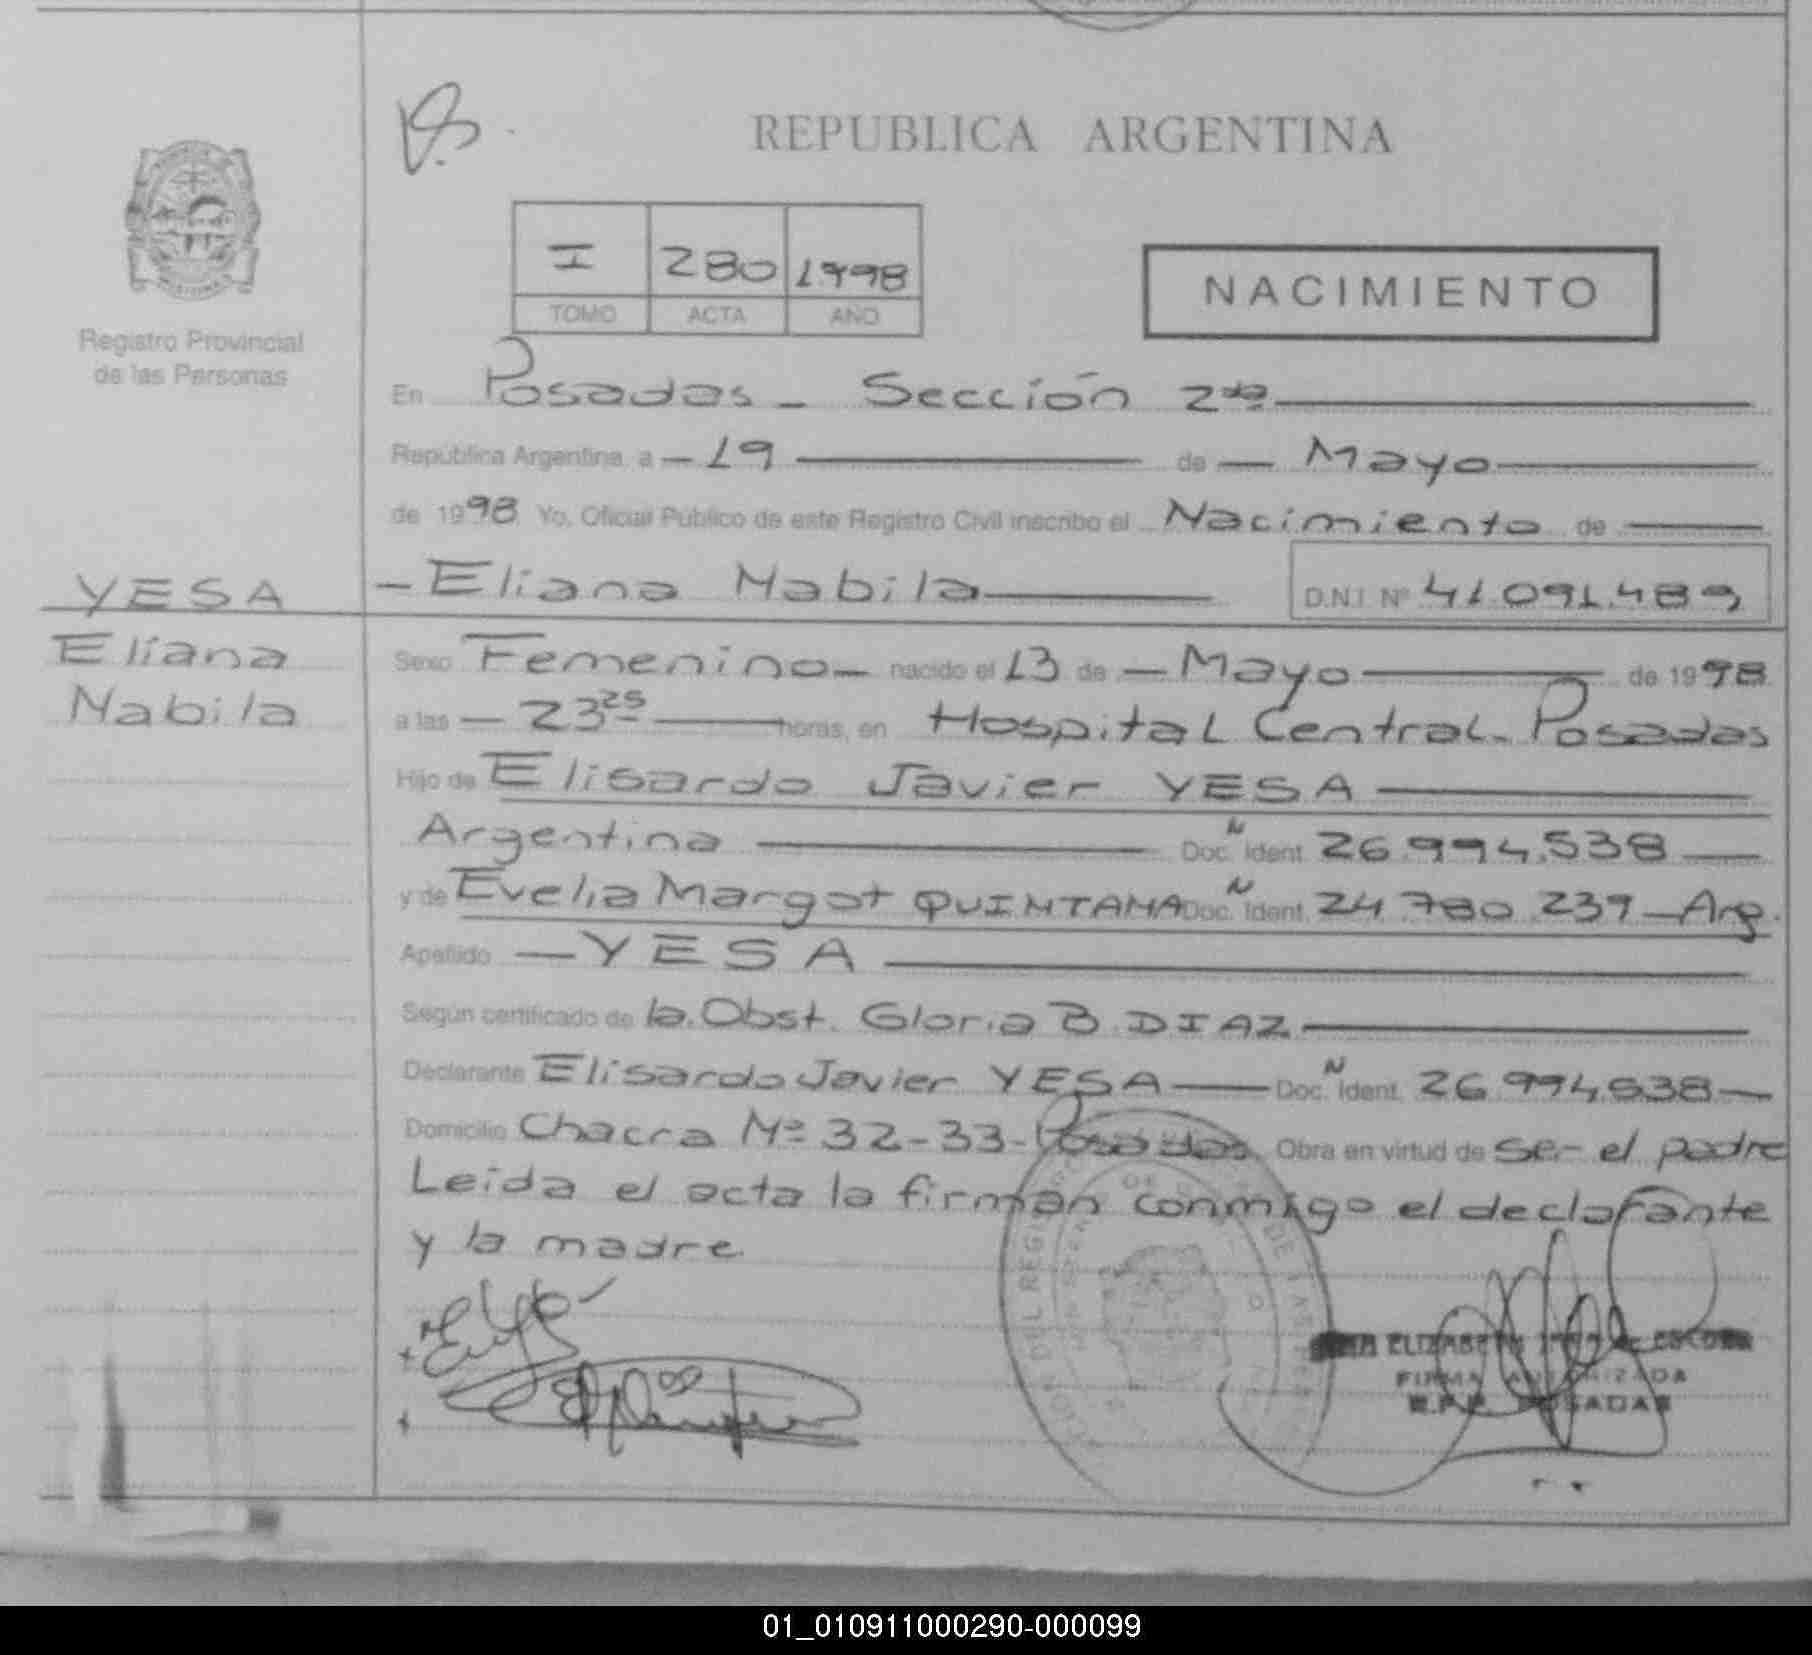 REPUBLICA ARGENTINA
I 280 1998
TOMO ACTA AÑO
NACIMIENTO
Registro Provincial
de las Personas
En Posadas - Sección 2da
República Argentina, a - 19 de - Mayo
de 1998 Yo, Oficial Público de este Registro Civil inscribo el Nacimiento de
YESA
- Eliana Nabila D.N.I. Nº 41.091.489
Eliana
Nabila
Sexo Femenino - nacido el 13 de - Mayo de 1998
a las - 23 25 horas, en Hospital Central - Posadas
Hijo de Elisardo Javier YESA
Argentina Doc. N Ident. 26.994.538
y de Evelia Margot QUINTANA Doc. N Ident. 24.780.239 - Arg.
Apellido - YESA
Según certificado de la Obst. Gloria B. DIAZ
Declarante Elisardo Javier YESA Doc. N Ident. 26.994.538
Domicilio Chacra Nº 32-33- Posadas. Obra en virtud de ser el padre
Leida el acta la firman conmigo el declarante
y la madre.
ELIZABETH
FIRMA AUTORIZADA
R.P.P. POSADAS
01_010911000290-000099